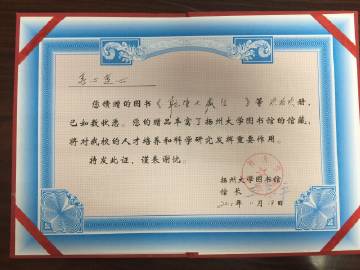 您馈赠的图书《乾隆大藏经》等 册,
已如数收悉。您的赠品丰富了扬州大学图书馆的馆藏,
将对我校的人才培养和科学研究发挥重要作用。
特发此证,谨表谢忱。
扬州大学图书馆
馆长
年11月 日